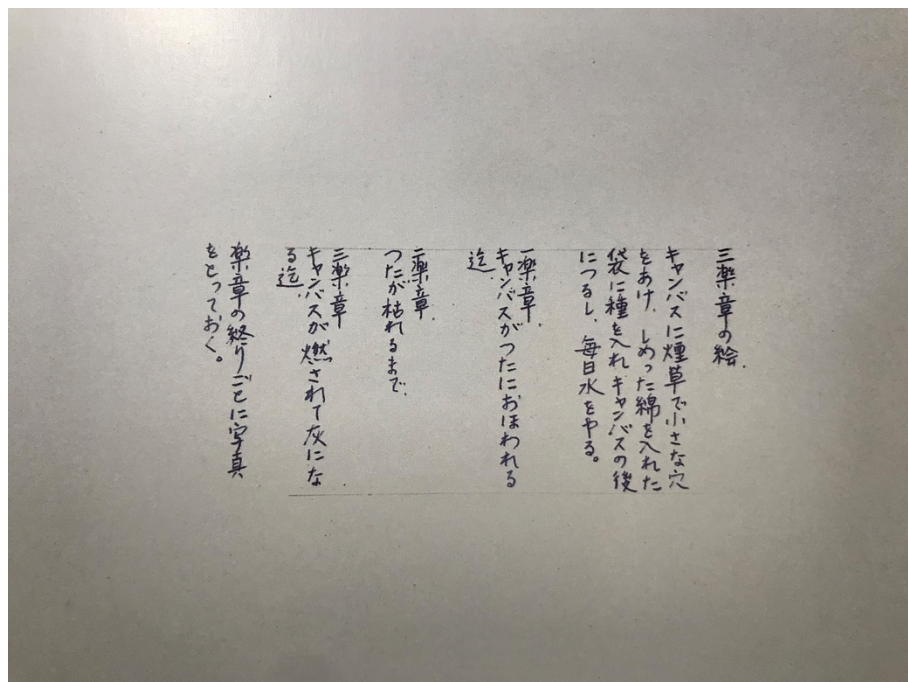 三楽章の絵.
キャンバスに煙草で小さな穴
をあけ、しめった綿を入れた
袋に種を入れキャンバスの後
につるし、毎日水をやる。
一楽章.
キャンバスがつたにおほわれる
迄
二楽章.
つたが枯れるまで.
三楽章
キャンバスが燃されて灰にな
る迄.
楽章の終りごとに写真
をとっておく。